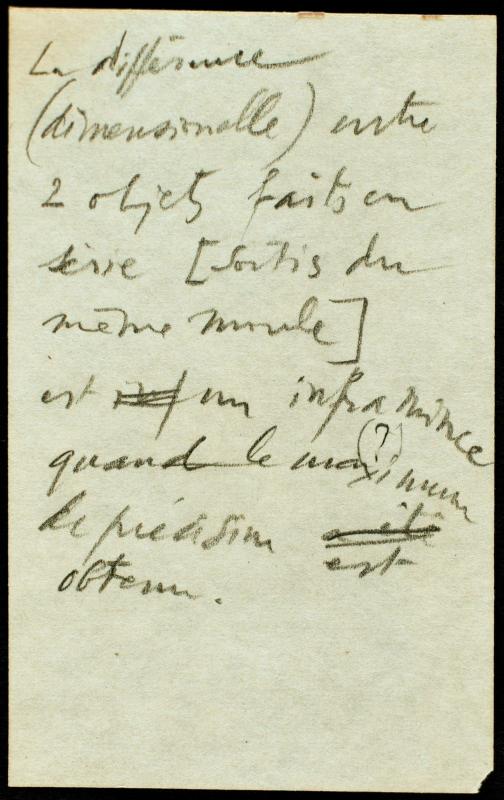 La différence
(dimensionnelle) entre
2 objets faits en
série [sortis du
même moule]
est inf un infra mince
quand le maximum (?)
de précision a été
est
obtenu.